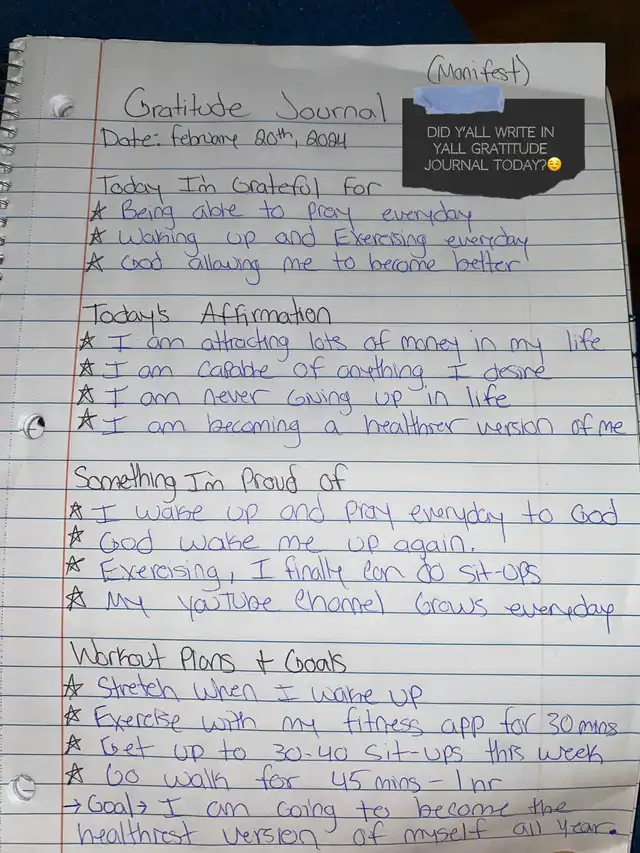 (Manifest)
Gratitude Journal
DID Y'ALL WRITE IN
YALL GRATITUDE
JOURNAL TODAY?😌
Date: february 20th, 2024
Today I'm Grateful For
☆ Being able to pray everyday
☆ Waking up and Exercising everyday
☆ God allowing me to become better
Today's Affirmation
☆ I am attracting lots of money in my life
☆ I am capable of anything I desire
☆ I am never Giving up in life
☆ I am becoming a healthier version of me
Something I'm Proud of
☆ I wake up and pray everyday to God
☆ God wake me up again.
☆ Exercising, I finally can do sit-ups
☆ My YouTube Channel Grows everyday
Workout Plans + Goals
☆ Stretch when I wake up
☆ Exercise with my fitness app for 30 mins
☆ Get up to 30-40 sit-ups this week
☆ Go walk for 45 mins - 1 hr
→ Goal → I am going to become the
healthiest version of myself all year.